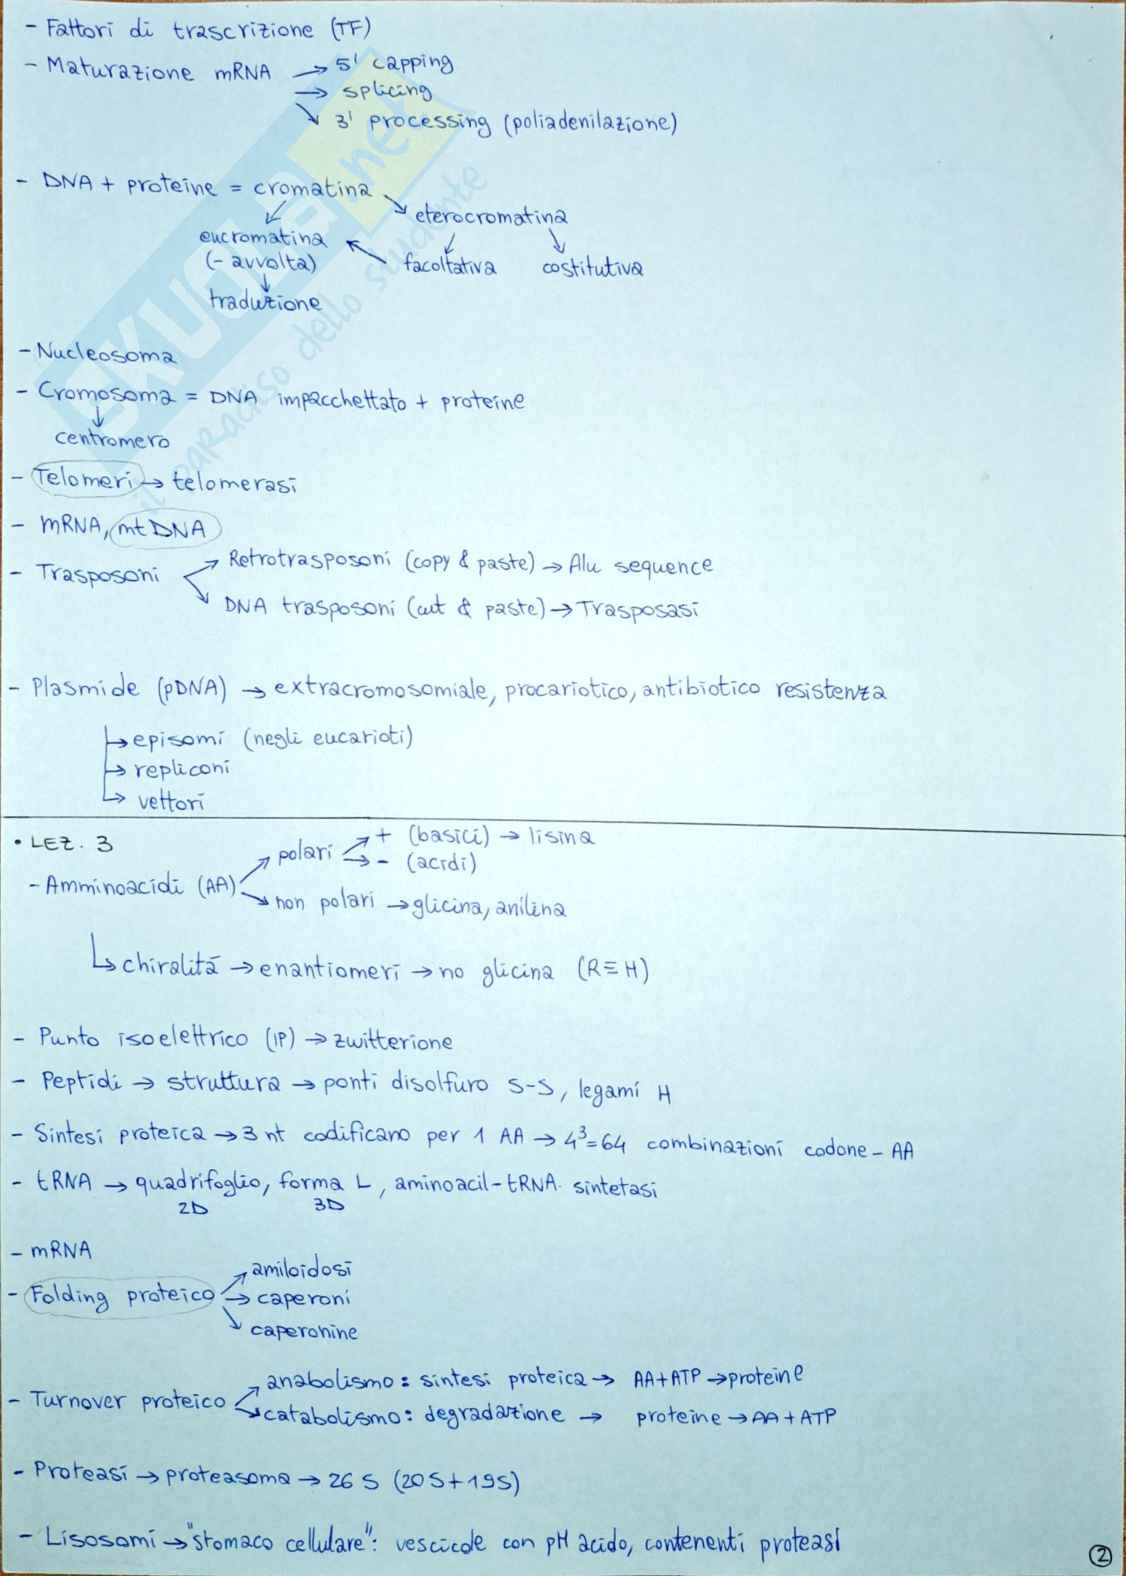 - Fattori di trascrizione (TF)
- Maturazione mRNA → 5' capping
→ splicing
↘ 3' processing (poliadenilazione)
- DNA + proteine = cromatina
↘ eterocromatina
↙ eucromatina
(- avvolta)
facoltativa costitutiva
↓
traduzione
- Nucleosoma
- Cromosoma = DNA impacchettato + proteine
↓
centromero
- Telomeri → telomerasi
- mRNA, mtDNA
- Trasposoni ↗ Retrotrasposoni (copy & paste) → Alu sequence
↘ DNA trasposoni (cut & paste) → Trasposasi
- Plasmide (pDNA) → extracromosomiale, procariotico, antibiotico resistenza
↳ episomi (negli eucarioti)
↳ repliconi
↳ vettori
• LEZ. 3
- Amminoacidi (AA) ↗ polari ↗ + (basici) → lisina
→ - (acidi)
↘ non polari → glicina, anilina
↳ chiralitá → enantiomeri → no glicina (R≡H)
- Punto isoelettrico (IP) → zwitterione
- Peptidi → struttura → ponti disolfuro S-S, legami H
- Sintesi proteica → 3 nt codificano per 1 AA → 4³=64 combinazioni codone - AA
- tRNA → quadrifoglio, forma L, aminoacil-tRNA sintetasi
2D 3D
- mRNA
- Folding proteico ↗ amiloidosi
→ caperoni
↘ caperonine
- Turnover proteico ↗ anabolismo: sintesi proteica → AA+ATP → proteine
↘ catabolismo: degradazione → proteine → AA + ATP
- Proteasi → proteasoma → 26 S (20S+19S)
- Lisosomi → "stomaco cellulare": vescicole con pH acido, contenenti proteasi
2
SKUOLA.net
il paradiso dello studente